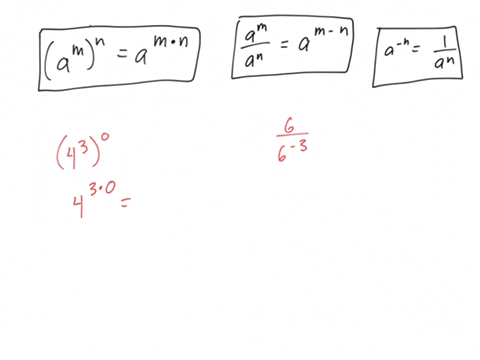 (a^m)^n = a^{m•n}
a^m/a^n = a^{m-n}
a^{-n} = 1/a^n
(4^3)^0
4^{3•0} =
6/6^{-3}